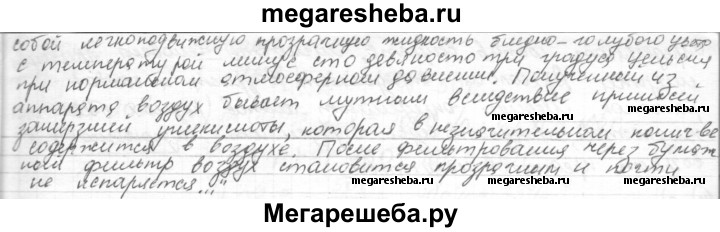 megaresheba.ru
собой легкоподвижную прозрачную жидкость бледно-голубого цвета
с температурой минус сто девяносто три градуса Цельсия
при нормальном атмосферном давлении. Полученный из
аппарата воздух бывает мутным вследствие примесей
megaresheba.ru
замерзшей углекислоты, которая в незначительном колич-ве
содержится в воздухе. После фильтрования через бумаж
megaresheba.ru
ный фильтр воздух становится прозрачным и почти
не испаряется..."
megaresheba.ru
megaresheba.ru
Мегарешеба.ру